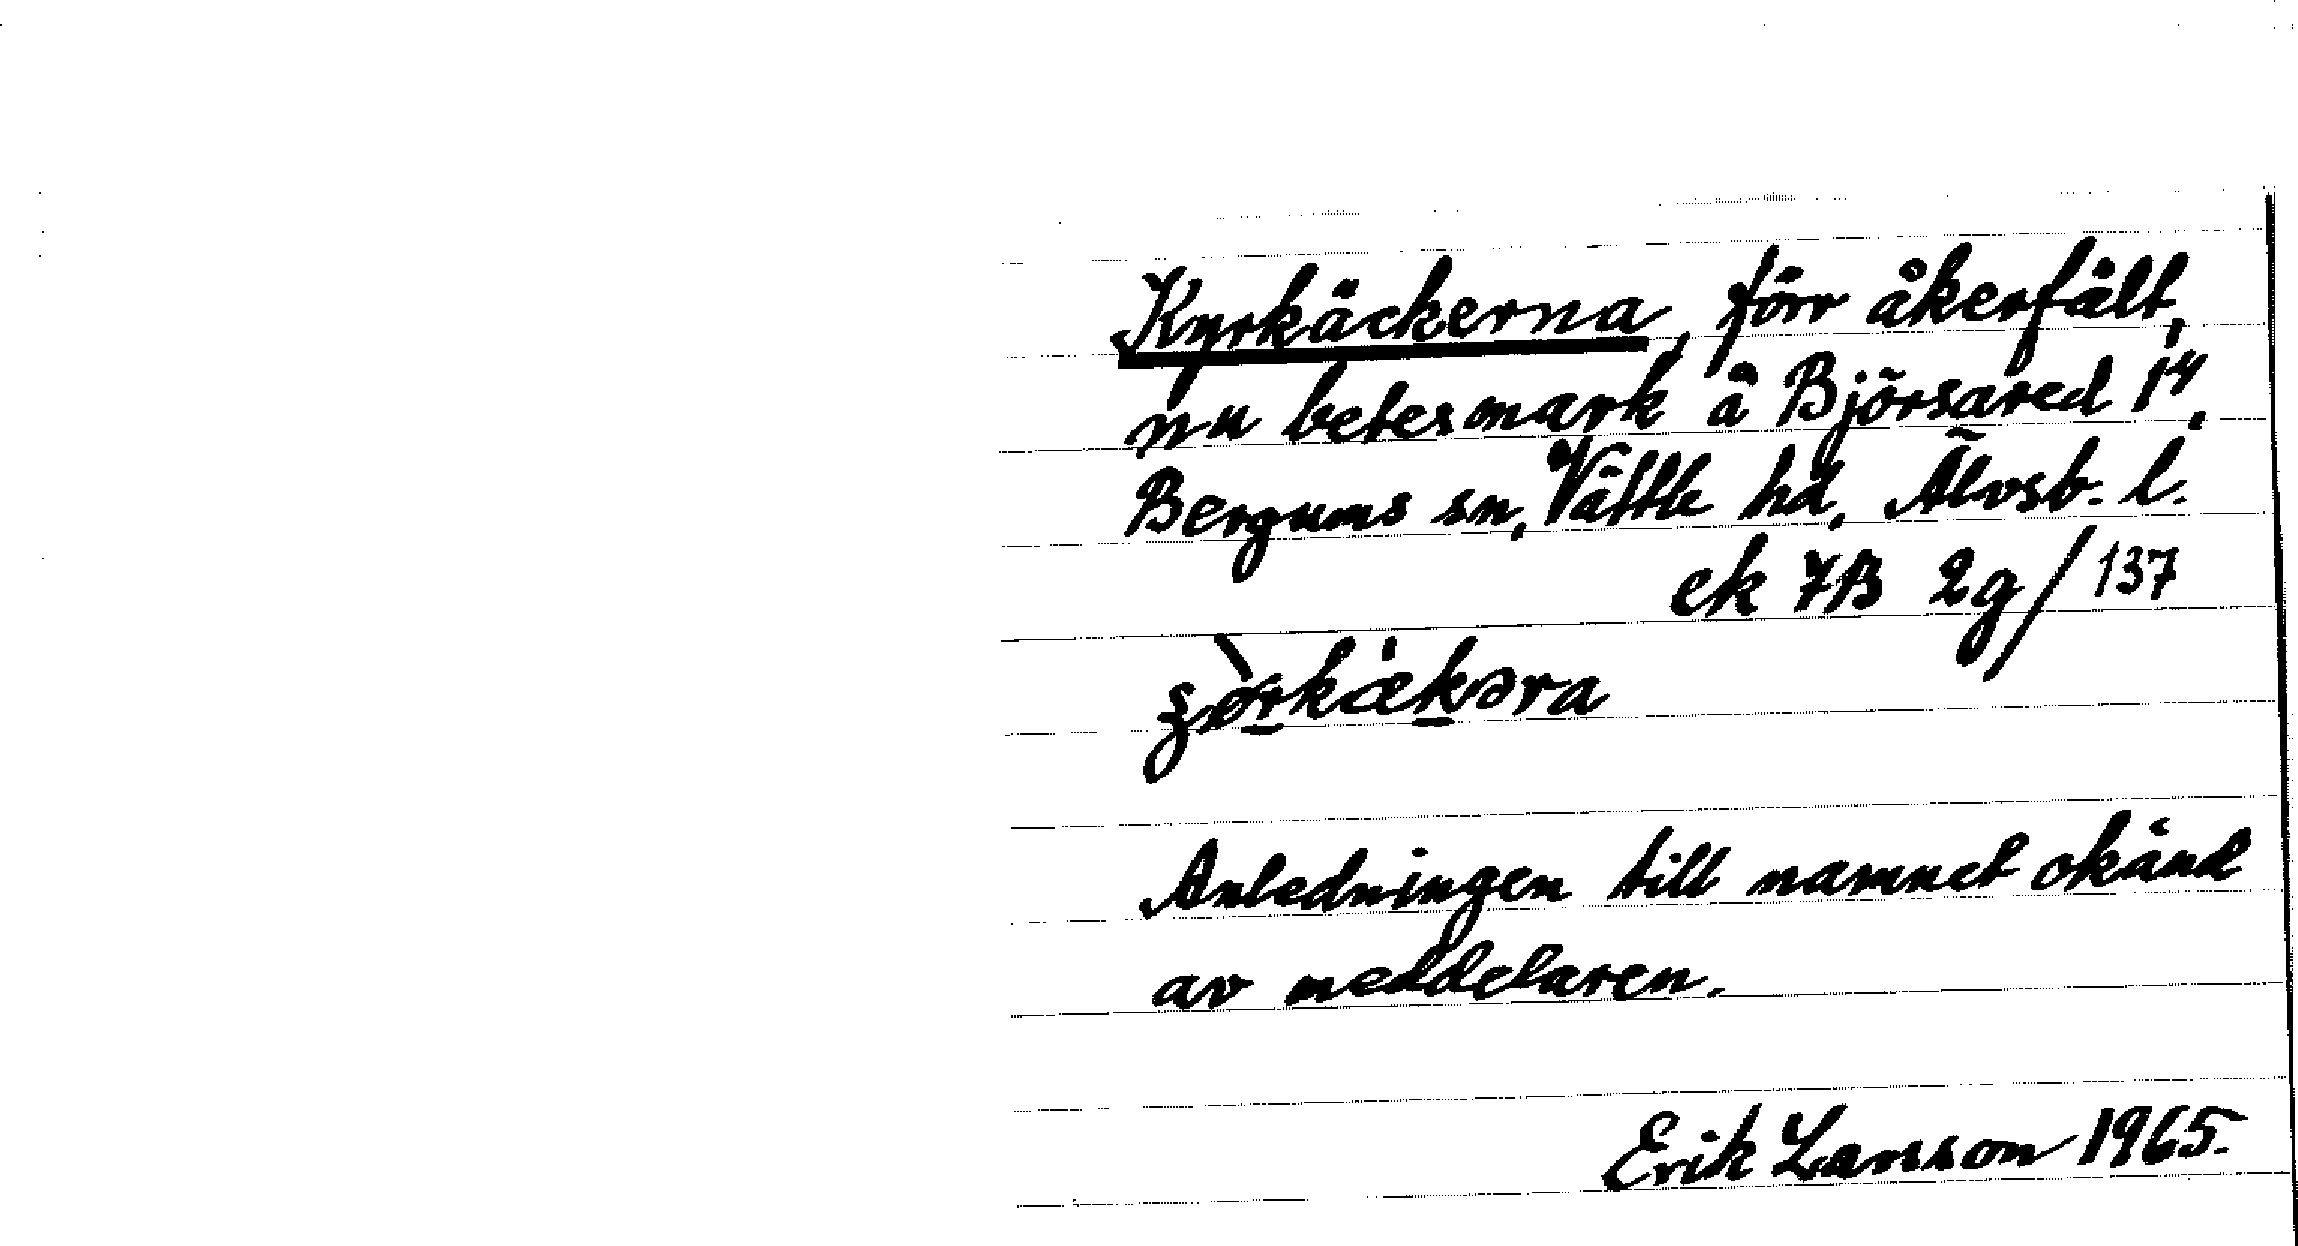 Kyrkäckerna, förr åkerfält,
nu betesmark å Björsared 1⁴,
Bergums sn, Vättle hd, Älvsb. l.
ek 7B 2g/137
Anledningen till namnet okänd
av meddelaren.
Erik Larsson 1965.